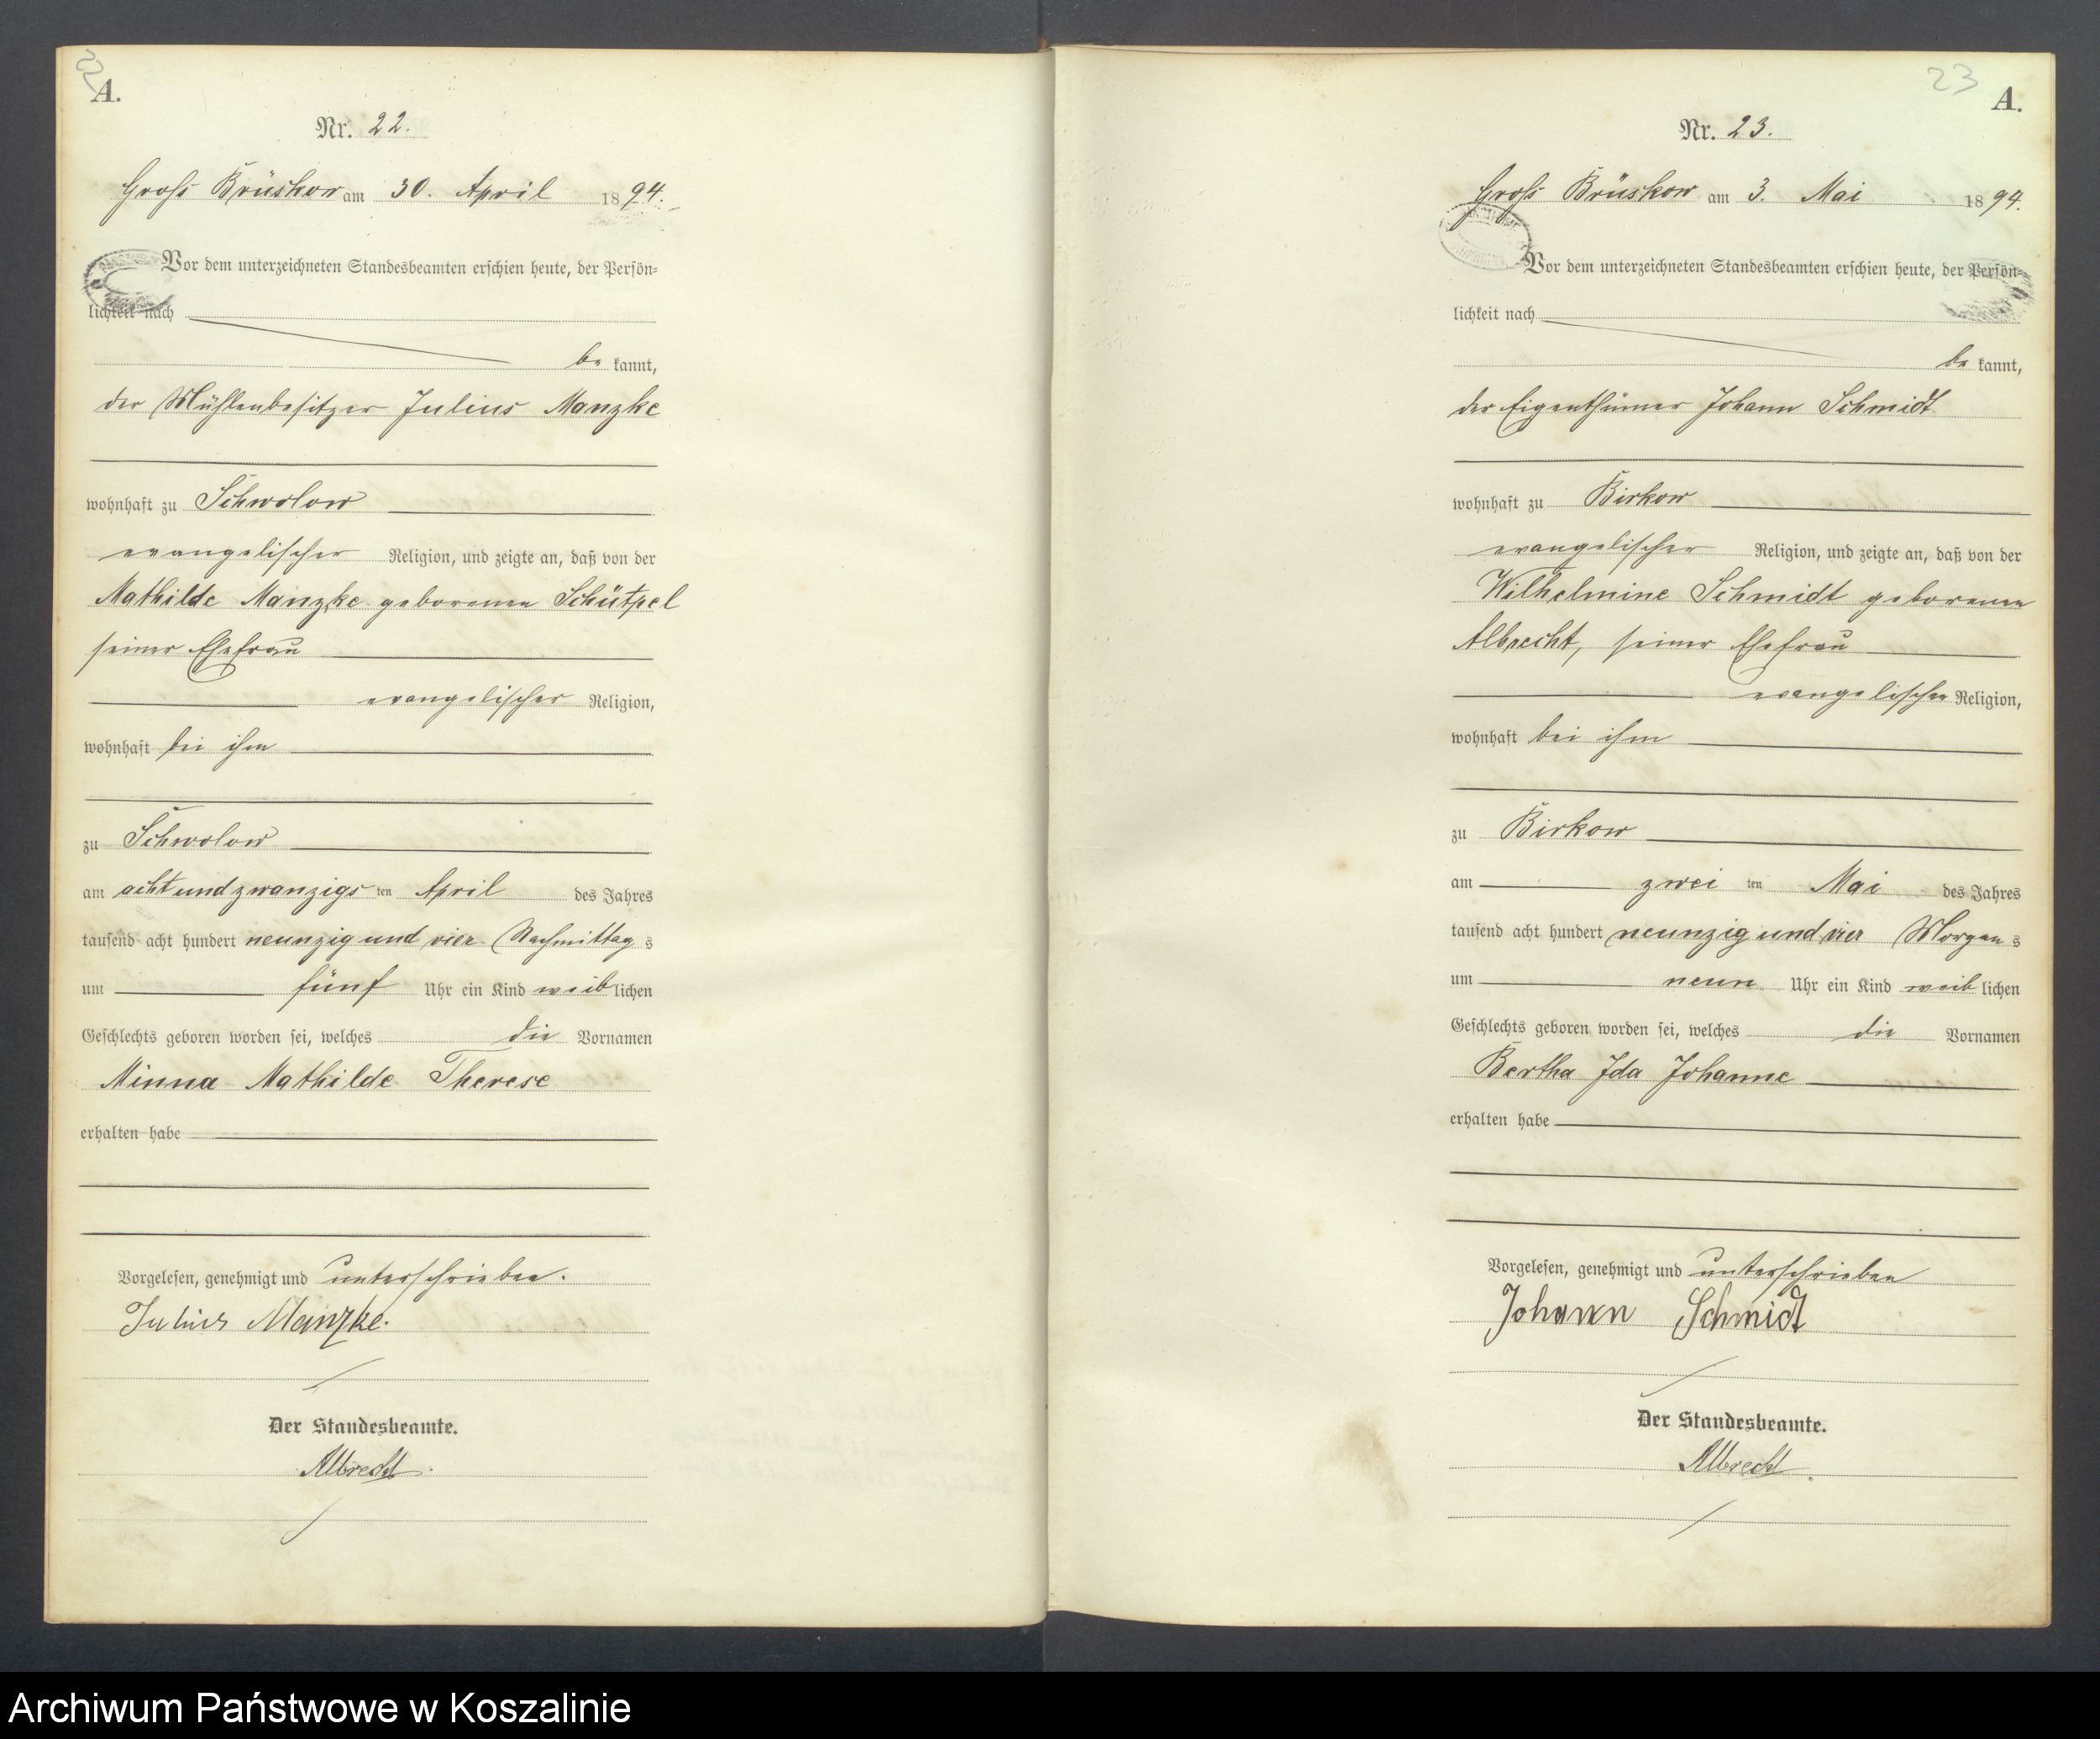 22
A.
Nr. 22.
Gross Brüskow am 30. April 1894.
Vor dem unterzeichneten Standesbeamten erschien heute, der Persön-
lichkeit nach
be kannt,
der Mühlenbesitzer Julius Manzke
wohnhaft zu Schwolow
evangelischer Religion, und zeigte an, daß von der
Mathilde Manzke geborenen
seiner Ehefrau
evangelischer Religion,
wohnhaft bei ihm
zu Schwolow
am acht und zwanzigs ten April des Jahres
tausend acht hundert neunzig und vier Nachmittag s
um fünf Uhr ein Kind weib lichen
Geschlechts geboren worden sei, welches die Vornamen
Minna Mathilde Therese
erhalten habe
Vorgelesen, genehmigt und unterschrieben.
Julius Manzke.
Der Standesbeamte.
Albrecht.
23
A.
Nr. 23.
Gross Brüskow am 3. Mai 1894.
Vor dem unterzeichneten Standesbeamten erschien heute, der Persön-
lichkeit nach
be kannt,
der Eigenthümer Johann Schmidt
wohnhaft zu Birkow
evangelischer Religion, und zeigte an, daß von der
Wilhelmine Schmidt geborenen
Albrecht, seiner Ehefrau
evangelischer Religion,
wohnhaft bei ihm
zu Birkow
am zwei ten Mai des Jahres
tausend acht hundert neunzig und vier Morgen s
um neun Uhr ein Kind weib lichen
Geschlechts geboren worden sei, welches die Vornamen
Bertha Ida Johanne
erhalten habe
Vorgelesen, genehmigt und unterschrieben
Johann Schmidt
Der Standesbeamte.
Albrecht.
Archiwum Państwowe w Koszalinie